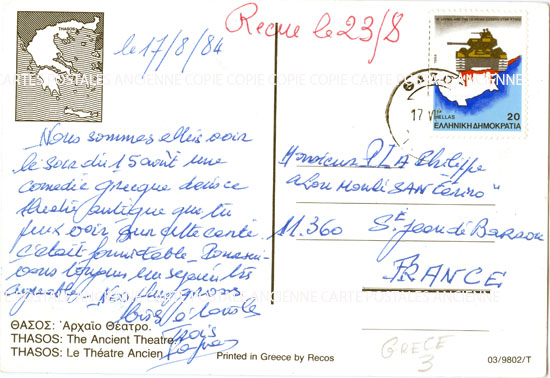 THASOS
le 17/8/84
Recue le 23/8
HELLAS
20
ΕΛΛΗΝΙΚΗ ΔΗΜΟΚΡΑΤΙΑ
17 VI
COPIE CARTE POSTALES ANCIENNE COPIE
Nous sommes allés voir
le soir du 15 août une
comédie grecque dans ce
théâtre antique que tu
peux voir sur cette carte
c'était formidable.
toujours un séjour très
agréable. Nous
Monsieur PLA Philippe
SAN
11.360 St Jean de Barrou
FRANCE
ΘΑΣΟΣ: Ἀρχαῖο Θέατρο.
THASOS: The Ancient Theatre
THASOS: Le Théatre Ancien
Printed in Greece by Recos
GRECE
3
03/9802/T